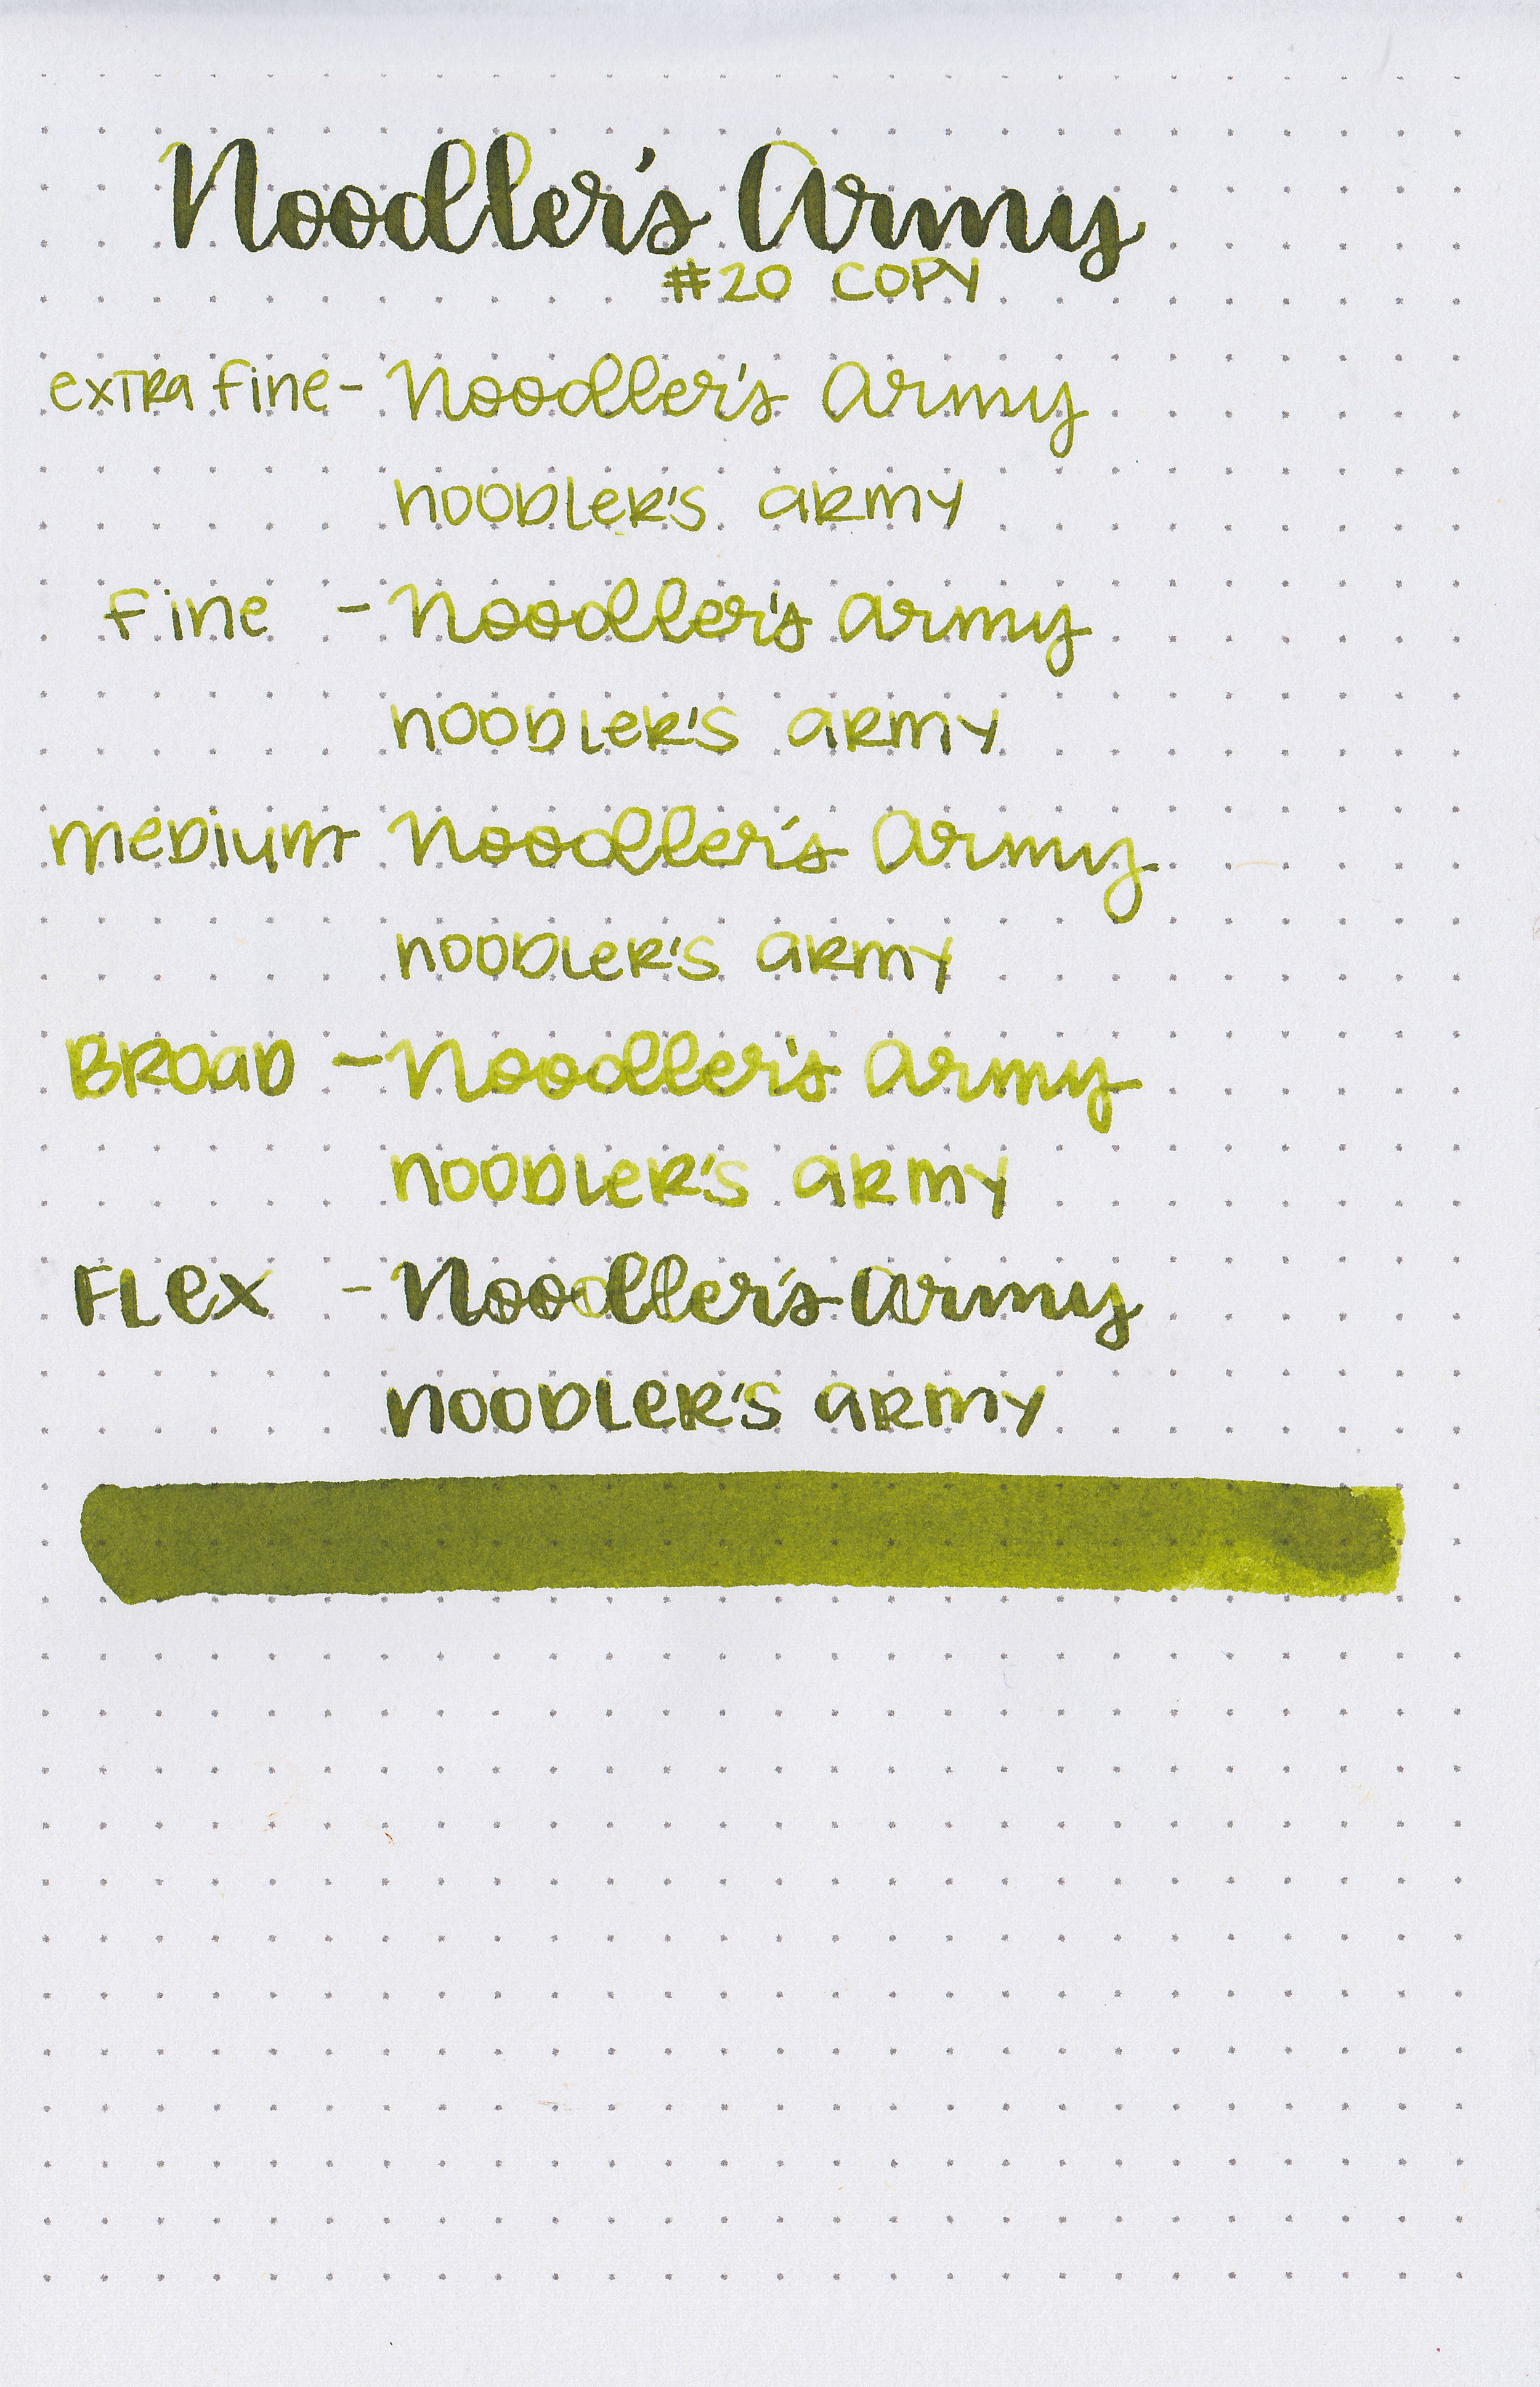 Noodler's Army
#20 COPY
extra fine - Noodler's Army
noodler's army
fine - Noodler's army
noodler's army
medium - Noodler's Army
noodler's army
BROAD - Noodler's Army
noodler's army
FLex - Noodler's Army
noodler's army